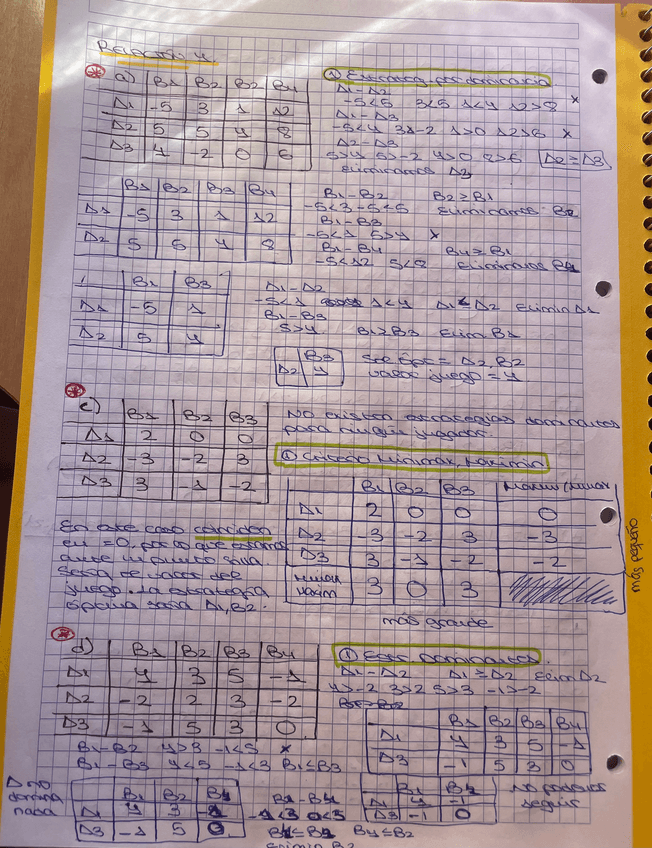 Relación 4.
a) B1 B2 B2 B4
A1 -5 3 1 12
A2 5 5 4 8
A3 4 -2 0 6
① Estrateg. por dominancia
A1-A2
-5<5 3<5 1<4 12>8 x
A1-A3
-5<4 3>-2 1>0 12>6 x
A2-A3
5>4 5>-2 4>0 8>6 A2≥A3
Eliminamos A3
B1 B2 B3 B4
A1 -5 3 1 12
A2 5 5 4 8
B1-B2 B2≥B1
-5<3 -5<5 Eliminamos B2
B1-B3
-5<1 5>4 x
B1-B4 B4≥B1
-5<12 5<8 Eliminamos B4
B1 B3
A1 -5 1
A2 5 4
A1-A2
-5<1 1<4 A1≤A2 Elimin A1
B1-B3
5>4 B1>B3 Elim B1
B3
A2 4
Sol Opt = A2, B2
Valor juego = 4
c) B1 B2 B3
A1 2 0 0
A2 -3 -2 3
A3 3 -1 -2
No existen estrategias dominantes
para ningún jugador.
① Criterio Minimax, Maximin
B1 B2 B3
A1 2 0 0 0
A2 -3 -2 3 -3
A3 3 -1 -2 -2
3 0 3
En este caso coinciden
en =0, por lo que estamos
ante un punto silla.
Será el valor del
juego. La estrategia
óptima será A1, B2.
más grande
más pequeño
d) B1 B2 B3 B4
A1 4 3 5 -1
A2 -2 2 3 -2
A3 -1 5 3 0
① Estr. Dominantes.
A1-A2 A1≥A2 Elim A2
4>-2 3>2 5>3 -1>-2
B1 B2 B3 B4
A1 4 3 5 -1
A3 -1 5 3 0
B1-B2 4>3 -1<5 x
B1-B3 4<5 -1<3 B1≤B3
A no
domina
nada
B1 B2 B4
A1 4 3 -1
A3 -1 5 0
B2-B4
-1<3 0<5
B4≤B2 B4≤B2
Elimin B2
B1 B4
A1 4 -1
A3 -1 0
No podemos
seguir